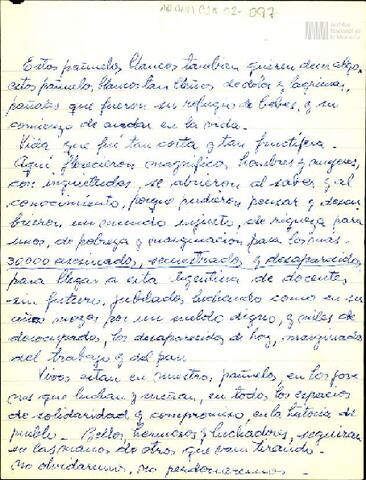 AR-ANM-CZK-C2-097
Archivo
Nacional de
la Memoria
Estos pañuelos blancos tambien quieren decir algo,
estos pañuelos blancos tan llenos de dolor y lagrimas,
pañales que fueron en refugio de bebes, y su
comienzo de andar en la vida.
Vida que fué tan corta y tan fructífera.
Aquí florecieron magníficos hombres y mujeres,
con inquietudes, se abrieron al saber y al
conocimiento, porque pudieron pensar y descu
brieron un mundo injusto, de riqueza para
unos, de pobreza y marginacion para los mas.
30000 asesinados, secuestrados y desaparecidos,
para llegar a esta Argentina de docentes
sin futuro, jubilados luchando como en su
años mozos por un sueldo digno, y miles de
desocupados, los desaparecidos de hoy, marginados
del trabajo y del pan.
Vivos estan en nuestros pañuelos, en los jove
nes que luchan y sueñan, en todos los espacios
de solidaridad y compromiso, en la historia de
pueblo. Bellos, hermosos y luchadores, seguiran
en las manos de otros que van tirando.
No olvidaremos, no perdonaremos.